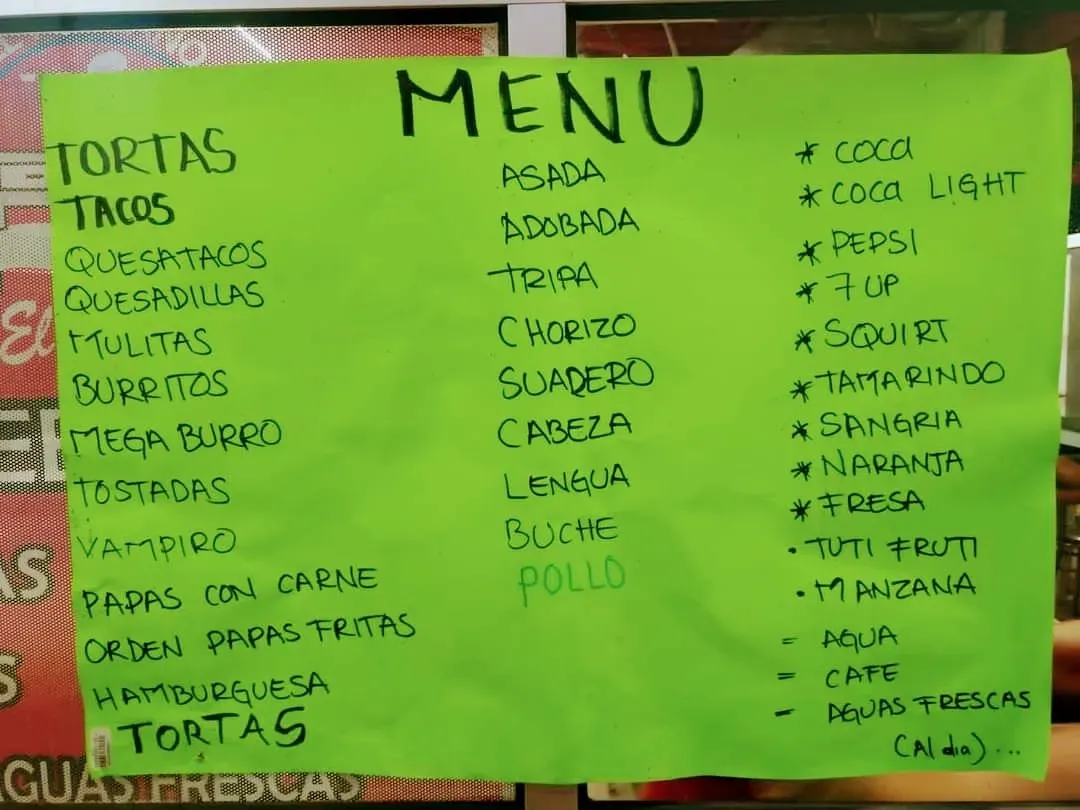 MENU
TORTAS
TACOS
QUESATACOS
QUESADILLAS
MULITAS
BURRITOS
MEGA BURRO
TOSTADAS
VAMPIRO
PAPAS CON CARNE
ORDEN PAPAS FRITAS
HAMBURGUESA
TORTAS
ASADA
ADOBADA
TRIPA
CHORIZO
SUADERO
CABEZA
LENGUA
BUCHE
POLLO
* COCA
* COCA LIGHT
* PEPSI
* 7 UP
* SQUIRT
* TAMARINDO
* SANGRIA
* NARANJA
* FRESA
• TUTI FRUTI
• MANZANA
= AGUA
= CAFE
- AGUAS FRESCAS
(Al dia)...
El
GUAS FRESCAS